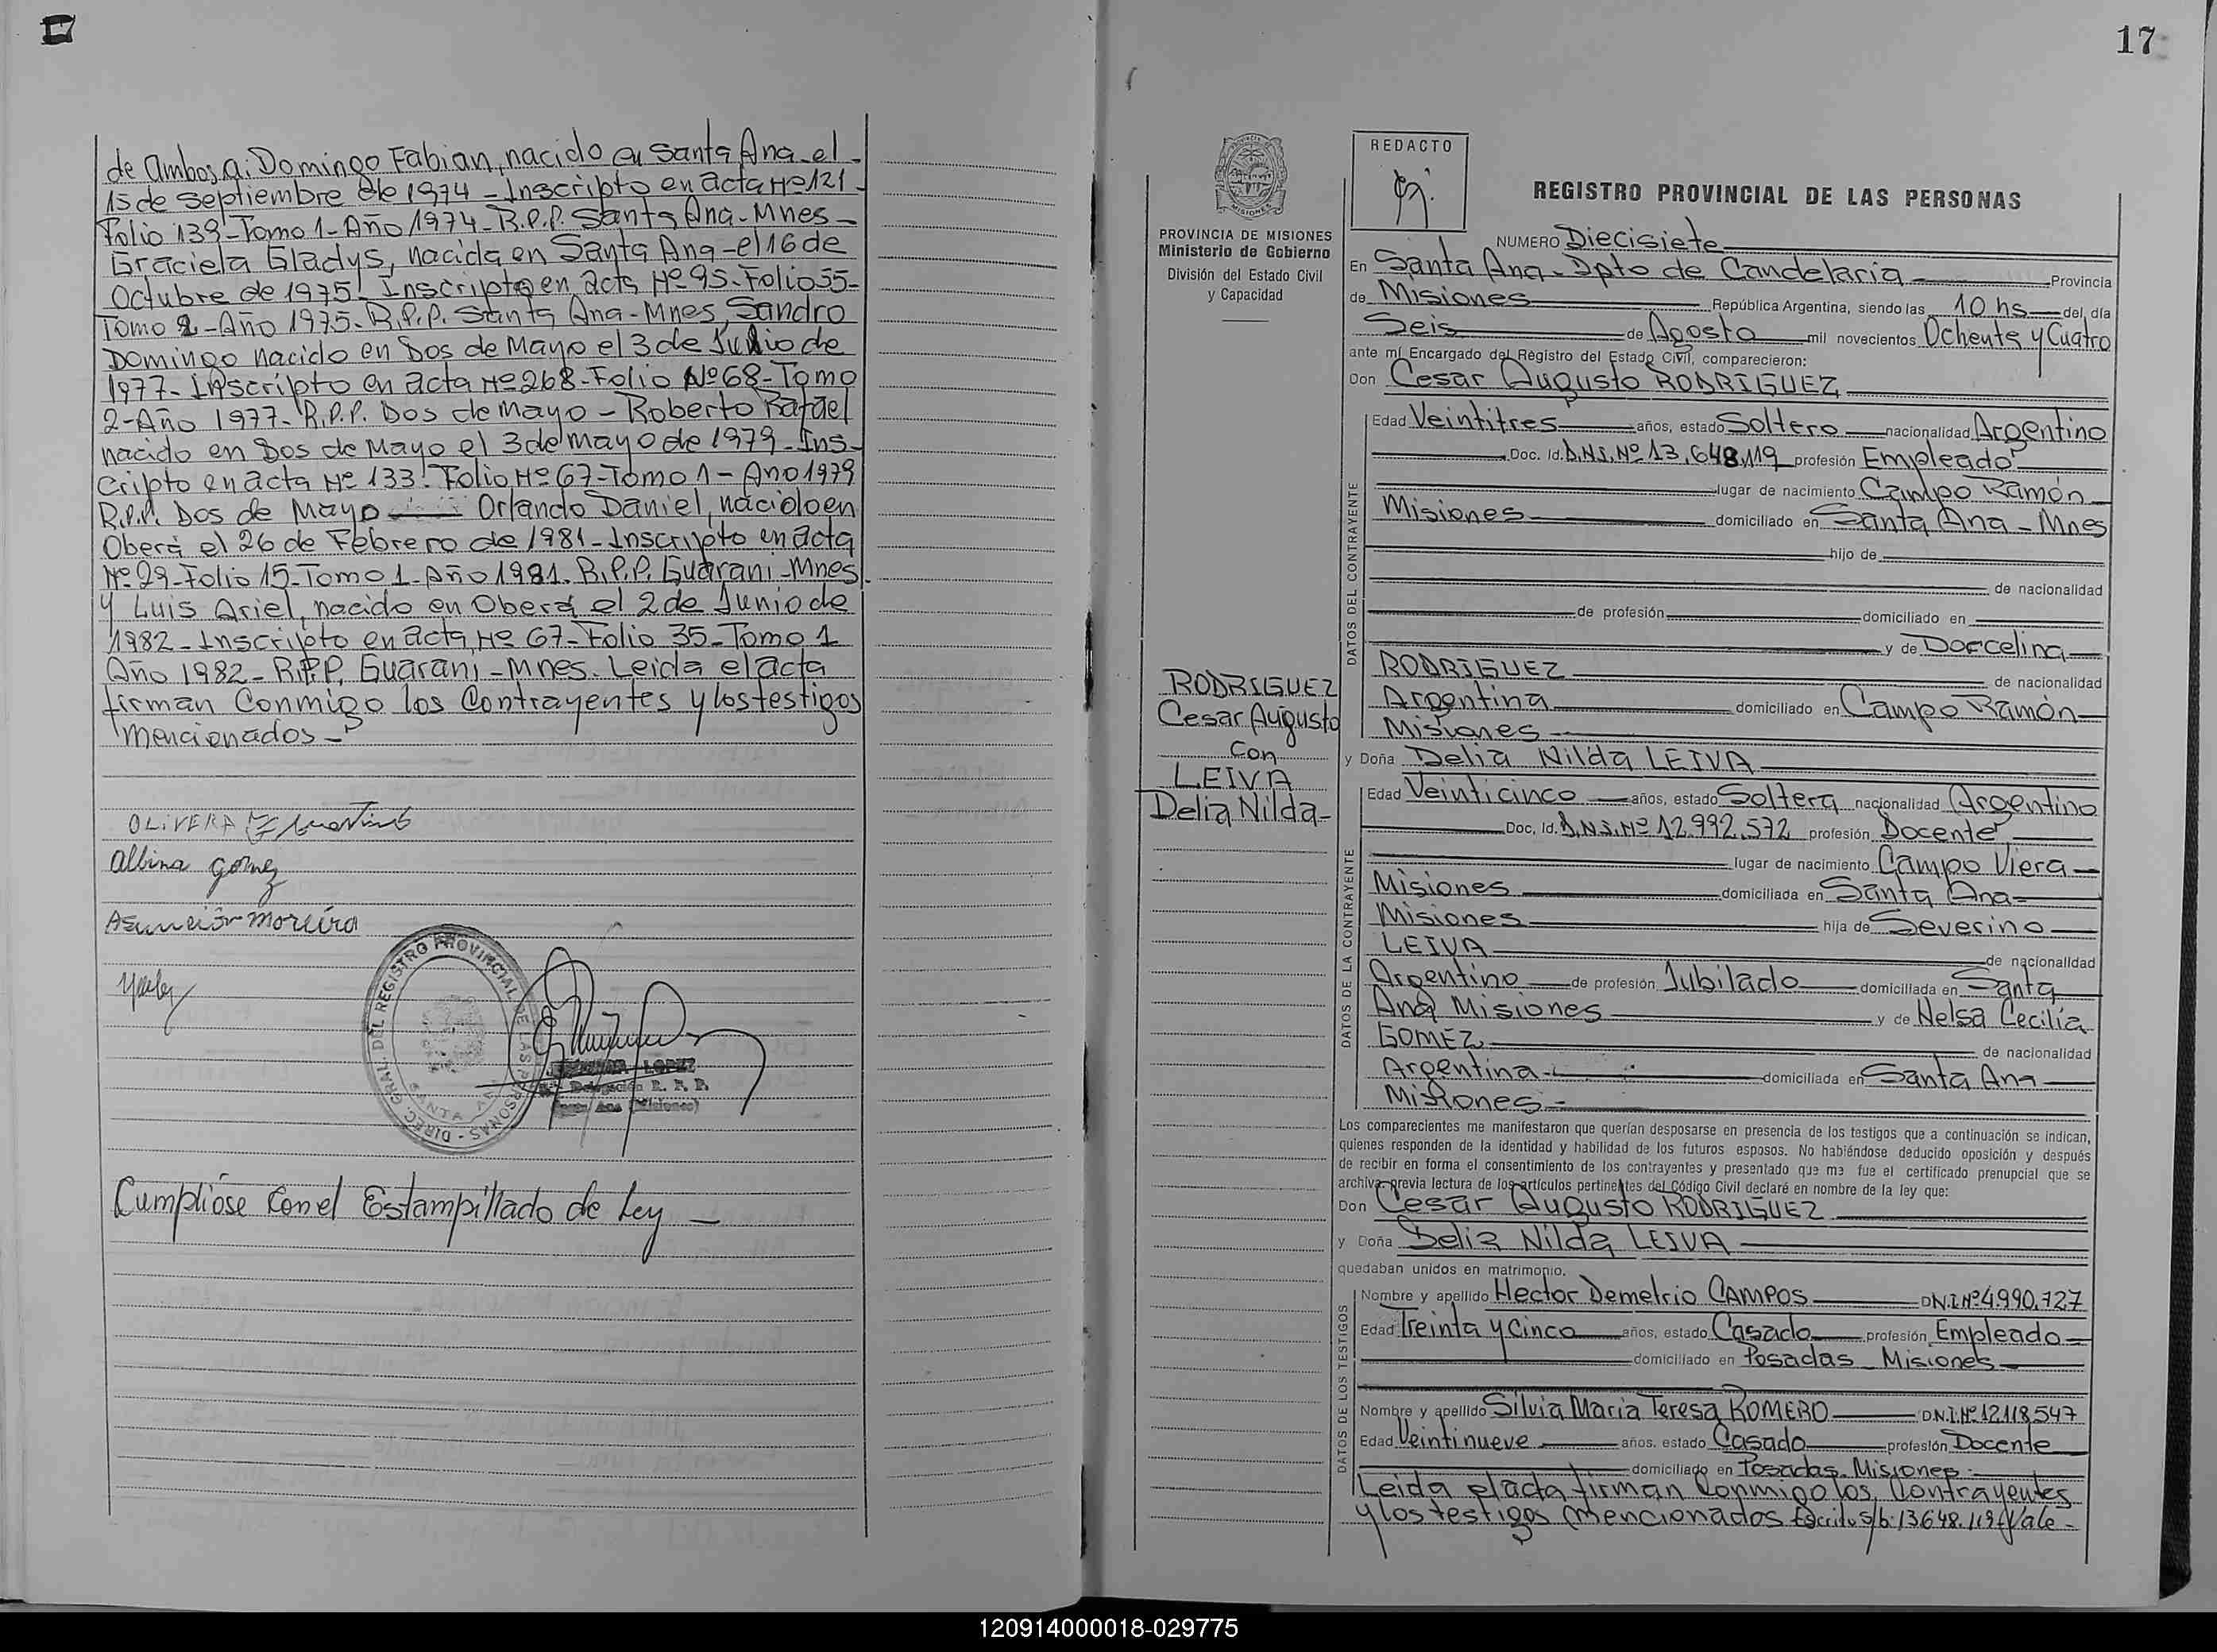 de Ambos a: Domingo Fabian, nacido en Santa Ana el
15 de Septiembre de 1974 - Inscripto en acta Nº 121
Folio 139 - Tomo 1 - Año 1974 - R.P.P. Santa Ana - Mnes -
Graciela Gladys, nacida en Santa Ana - el 16 de
Octubre de 1975 - Inscripta en acta Nº 95 - Folio 55 -
Tomo 2 - Año 1975 - R.P.P. Santa Ana - Mnes, Sandro
Domingo nacido en Dos de Mayo el 3 de Julio de
1977 - Inscripto en acta Nº 268 - Folio Nº 68 - Tomo
2 - Año 1977 - R.P.P. Dos de Mayo - Roberto Rafael
nacido en Dos de Mayo el 3 de mayo de 1979 - Ins-
cripto en acta Nº 133 - Folio Nº 67 - Tomo 1 - Año 1979
R.P.P. Dos de Mayo - Orlando Daniel, nacido en
Oberá el 26 de Febrero de 1981 - Inscripto en acta
Nº 29 - Folio 15 - Tomo 1 - Año 1981. R.P.P. Guarani - Mnes
y Luis Ariel, nacido en Oberá el 2 de Junio de
1982 - Inscripto en acta Nº 67 - Folio 35 - Tomo 1
Año 1982 - R.P.P. Guarani - Mnes. Leida el acta
firman Conmigo los Contrayentes y los testigos
mencionados -
OLIVERA
Albina Gomez
Asunción Moreira
DIREC. GRAL. DEL REGISTRO PROVINCIAL DE LAS PERSONAS - SANTA ANA
LOPEZ
Delegación R. P. P.
Santa Ana (Misiones)
Cumplióse con el Estampillado de Ley -
17
PROVINCIA DE MISIONES
Ministerio de Gobierno
División del Estado Civil
y Capacidad
RODRIGUEZ
Cesar Augusto
Con
LEIVA
Delia Nilda -
REDACTO
REGISTRO PROVINCIAL DE LAS PERSONAS
NUMERO Diecisiete
En Santa Ana - Dpto de Candelaria Provincia
de Misiones República Argentina, siendo las 10 hs del día
Seis de Agosto mil novecientos Ochenta y Cuatro
ante mí Encargado del Registro del Estado Civil, comparecieron:
Don Cesar Augusto RODRIGUEZ
DATOS DEL CONTRAYENTE
Edad Veintitres años, estado Soltero nacionalidad Argentino
Doc. Id. D.N.I. Nº 13.648.119 profesión Empleado
lugar de nacimiento Campo Ramón
Misiones domiciliado en Santa Ana - Mnes
hijo de
de nacionalidad
de profesión domiciliado en
y de Dorcelina
RODRIGUEZ de nacionalidad
Argentina domiciliado en Campo Ramón
Misiones
y Doña Delia Nilda LEIVA
DATOS DE LA CONTRAYENTE
Edad Veinticinco años, estado Soltera nacionalidad Argentino
Doc. Id. D.N.I. Nº 12.992.572 profesión Docente
lugar de nacimiento Campo Viera
Misiones domiciliada en Santa Ana -
Misiones hija de Severino
LEIVA de nacionalidad
Argentino de profesión Jubilado domiciliada en Santa
Ana Misiones y de Nelsa Cecilia
GOMEZ de nacionalidad
Argentina domiciliada en Santa Ana
Misiones -
Los comparecientes me manifestaron que querían desposarse en presencia de los testigos que a continuación se indican,
quienes responden de la identidad y habilidad de los futuros esposos. No habiéndose deducido oposición y después
de recibir en forma el consentimiento de los contrayentes y presentado que me fue el certificado prenupcial que se
archiva previa lectura de los artículos pertinentes del Código Civil declaré en nombre de la ley que:
Don Cesar Augusto RODRIGUEZ
y Doña Delia Nilda LEIVA
quedaban unidos en matrimonio.
DATOS DE LOS TESTIGOS
Nombre y apellido Hector Demetrio CAMPOS D.N.I. Nº 4.990.727
Edad Treinta y Cinco años, estado Casado profesión Empleado
domiciliado en Posadas Misiones
Nombre y apellido Silvia Maria Teresa ROMERO D.N.I. Nº 12.118.547
Edad Veintinueve años, estado Casado profesión Docente
domiciliado en Posadas Misiones
Leida el acta firman Conmigo los Contrayentes
y los testigos mencionados Escrito s/b: 13.648.119 Vale -
120914000018-029775